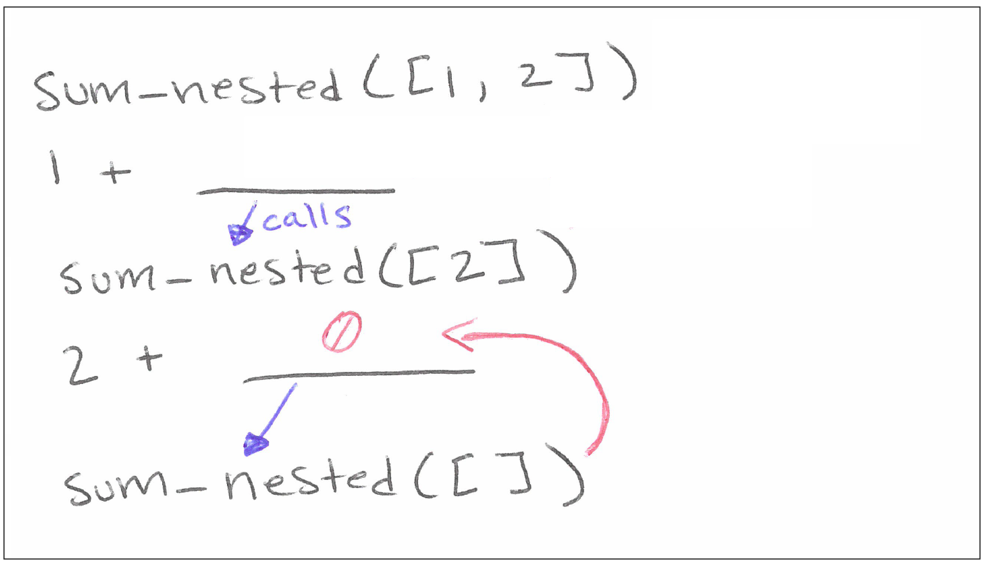 sum-nested([1, 2])
1 + 
calls
sum-nested([2])
0
2 + 
sum-nested([ ])